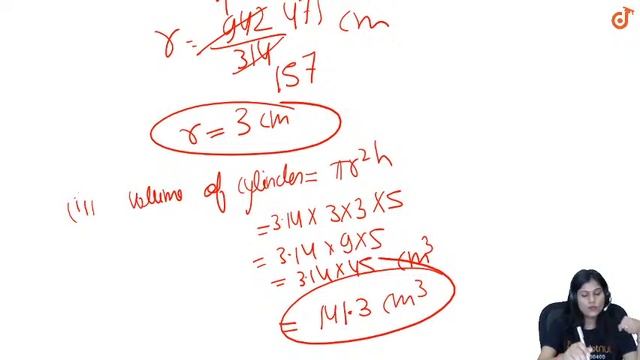 r = 942 471 cm
314
157
r = 3 cm
(ii) volume of cylinder = πr²h
= 3.14 × 3 × 3 × 5
= 3.14 × 9 × 5
= 3.14 × 45 cm³
= 141.3 cm³